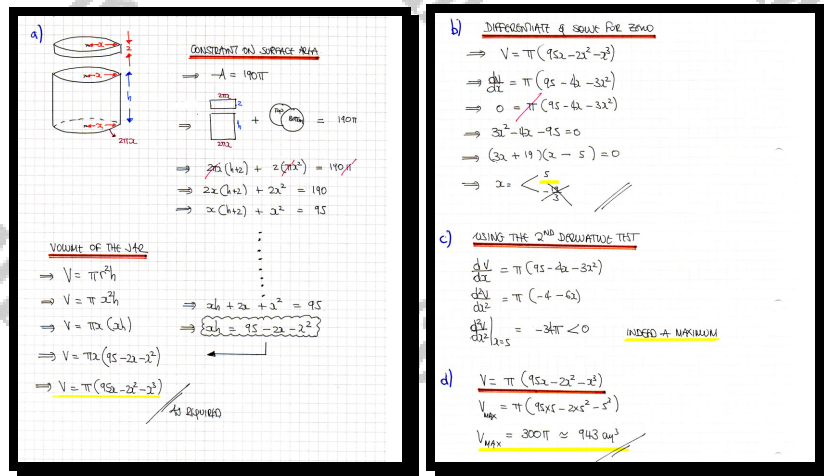 a)
x
2
x
h
x
2πx
CONSTRAINT ON SURFACE AREA
⇒ A = 190π
2πx
2
⇒ h + TOP BOTTOM = 190π
2πx
⇒ 2πx(h+2) + 2(πx²) = 190π
⇒ 2x(h+2) + 2x² = 190
⇒ x(h+2) + x² = 95
⇒ xh + 2x + x² = 95
⇒ xh = 95 - 2x - x²
VOLUME OF THE JAR
⇒ V = πr²h
⇒ V = πx²h
⇒ V = πx(xh)
⇒ V = πx(95-2x-x²)
⇒ V = π(95x-2x²-x³)
AS REQUIRED
b) DIFFERENTIATE & SOLVE FOR ZERO
⇒ V = π(95x-2x²-x³)
⇒ dV/dx = π(95-4x-3x²)
⇒ 0 = π(95-4x-3x²)
⇒ 3x²-4x-95=0
⇒ (3x+19)(x-5)=0
⇒ x = < 5
-19/3
c) USING THE 2ND DERIVATIVE TEST
dV/dx = π(95-4x-3x²)
d²V/dx² = π(-4-6x)
d²V/dx²|x=5 = -34π < 0 INDEED A MAXIMUM
d) V = π(95x-2x²-x³)
VMAX = π(95×5-2×5²-5³)
VMAX = 300π ≃ 943 cm³